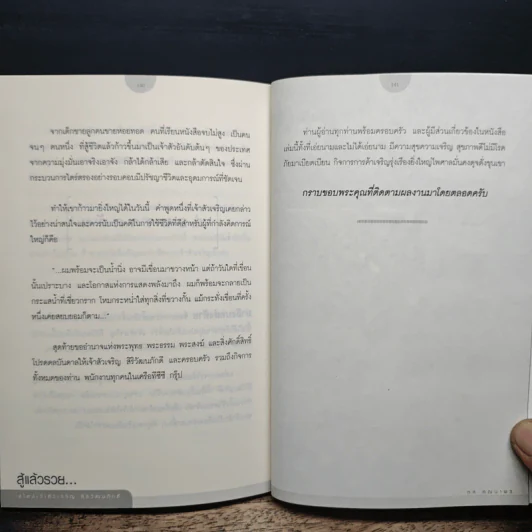 จากเด็กชายลูกคนขายหอยทอด คนที่เรียนหนังสือจบไม่สูง เป็นคน
จนๆ คนหนึ่ง ที่สู้ชีวิตแล้วก้าวขึ้นมาเป็นเจ้าสัวอันดับต้นๆ ของประเทศ
จากความมุ่งมั่นเอาจริงเอาจัง กล้าได้กล้าเสีย และกล้าตัดสินใจ ซึ่งผ่าน
กระบวนการไตร่ตรองอย่างรอบคอบมีปรัชญาชีวิตและอุดมการณ์ที่ชัดเจน
ทำให้เขาก้าวมายิ่งใหญ่ได้ในวันนี้ คำพูดหนึ่งที่เจ้าสัวเจริญเคยกล่าว
ไว้อย่างน่าสนใจและควรนับเป็นคติในการใช้ชีวิตที่ดีสำหรับผู้ที่กำลังคิดการณ์
ใหญ่ก็คือ
"...ผมพร้อมจะเป็นน้ำนิ่ง อาจมีเขื่อนมาขวางหน้า แต่ถ้าวันใดที่เขื่อน
นั้นเปราะบาง และโอกาสแห่งการแสดงพลังมาถึง ผมก็พร้อมจะกลายเป็น
กระแสน้ำที่เชี่ยวกราก โหมกระหน้ำใส่ทุกสิ่งที่ขวางกั้น แม้กระทั่งเขื่อนที่ครั้ง
หนึ่งเคยสยบยอมก็ตาม..."
สุดท้ายขออำนาจแห่งพระพุทธ พระธรรม พระสงฆ์ และสิ่งศักดิ์สิทธิ์
โปรดดลบันดาลให้เจ้าสัวเจริญ สิริวัฒนภักดี และครอบครัว รวมถึงกิจการ
ทั้งหมดของท่าน พนักงานทุกคนในเครือทีซีซี กรุ๊ป
สู้แล้วรวย...
ท่านผู้อ่านทุกท่านพร้อมครอบครัว และผู้มีส่วนเกี่ยวข้องในหนังสือ
เล่มนี้ทั้งที่เอ่ยนามและไม่ได้เอ่ยนาม มีความสุขความเจริญ สุขภาพดีไม่มีโรค
ภัยมาเบียดเบียน กิจการการค้าเจริญรุ่งเรืองยิ่งใหญ่ไพศาลมั่นคงดุจดั่งขุนเขา
กราบขอบพระคุณที่ติดตามผลงานมาโดยตลอดครับ